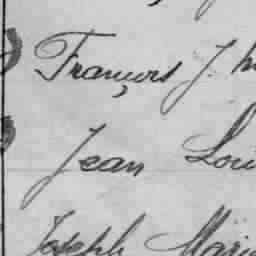 François J.
Jean Loui
Joseph Mari